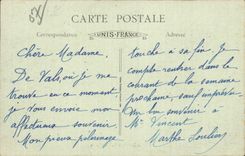 CARTE POSTALE
Correspondance
UNIS-FRANCE
Adresse
Chère Madame,
De Vals, où je me
trouve en ce moment,
je vous envoie mon
affectueux souvenir.
Mon pieux pèlerinage
touche à sa fin. Je
compte rentrer dans le
courant de la semaine
prochaine, sauf imprévu.
Un bon souvenir à
Mr Vincent
Marthe